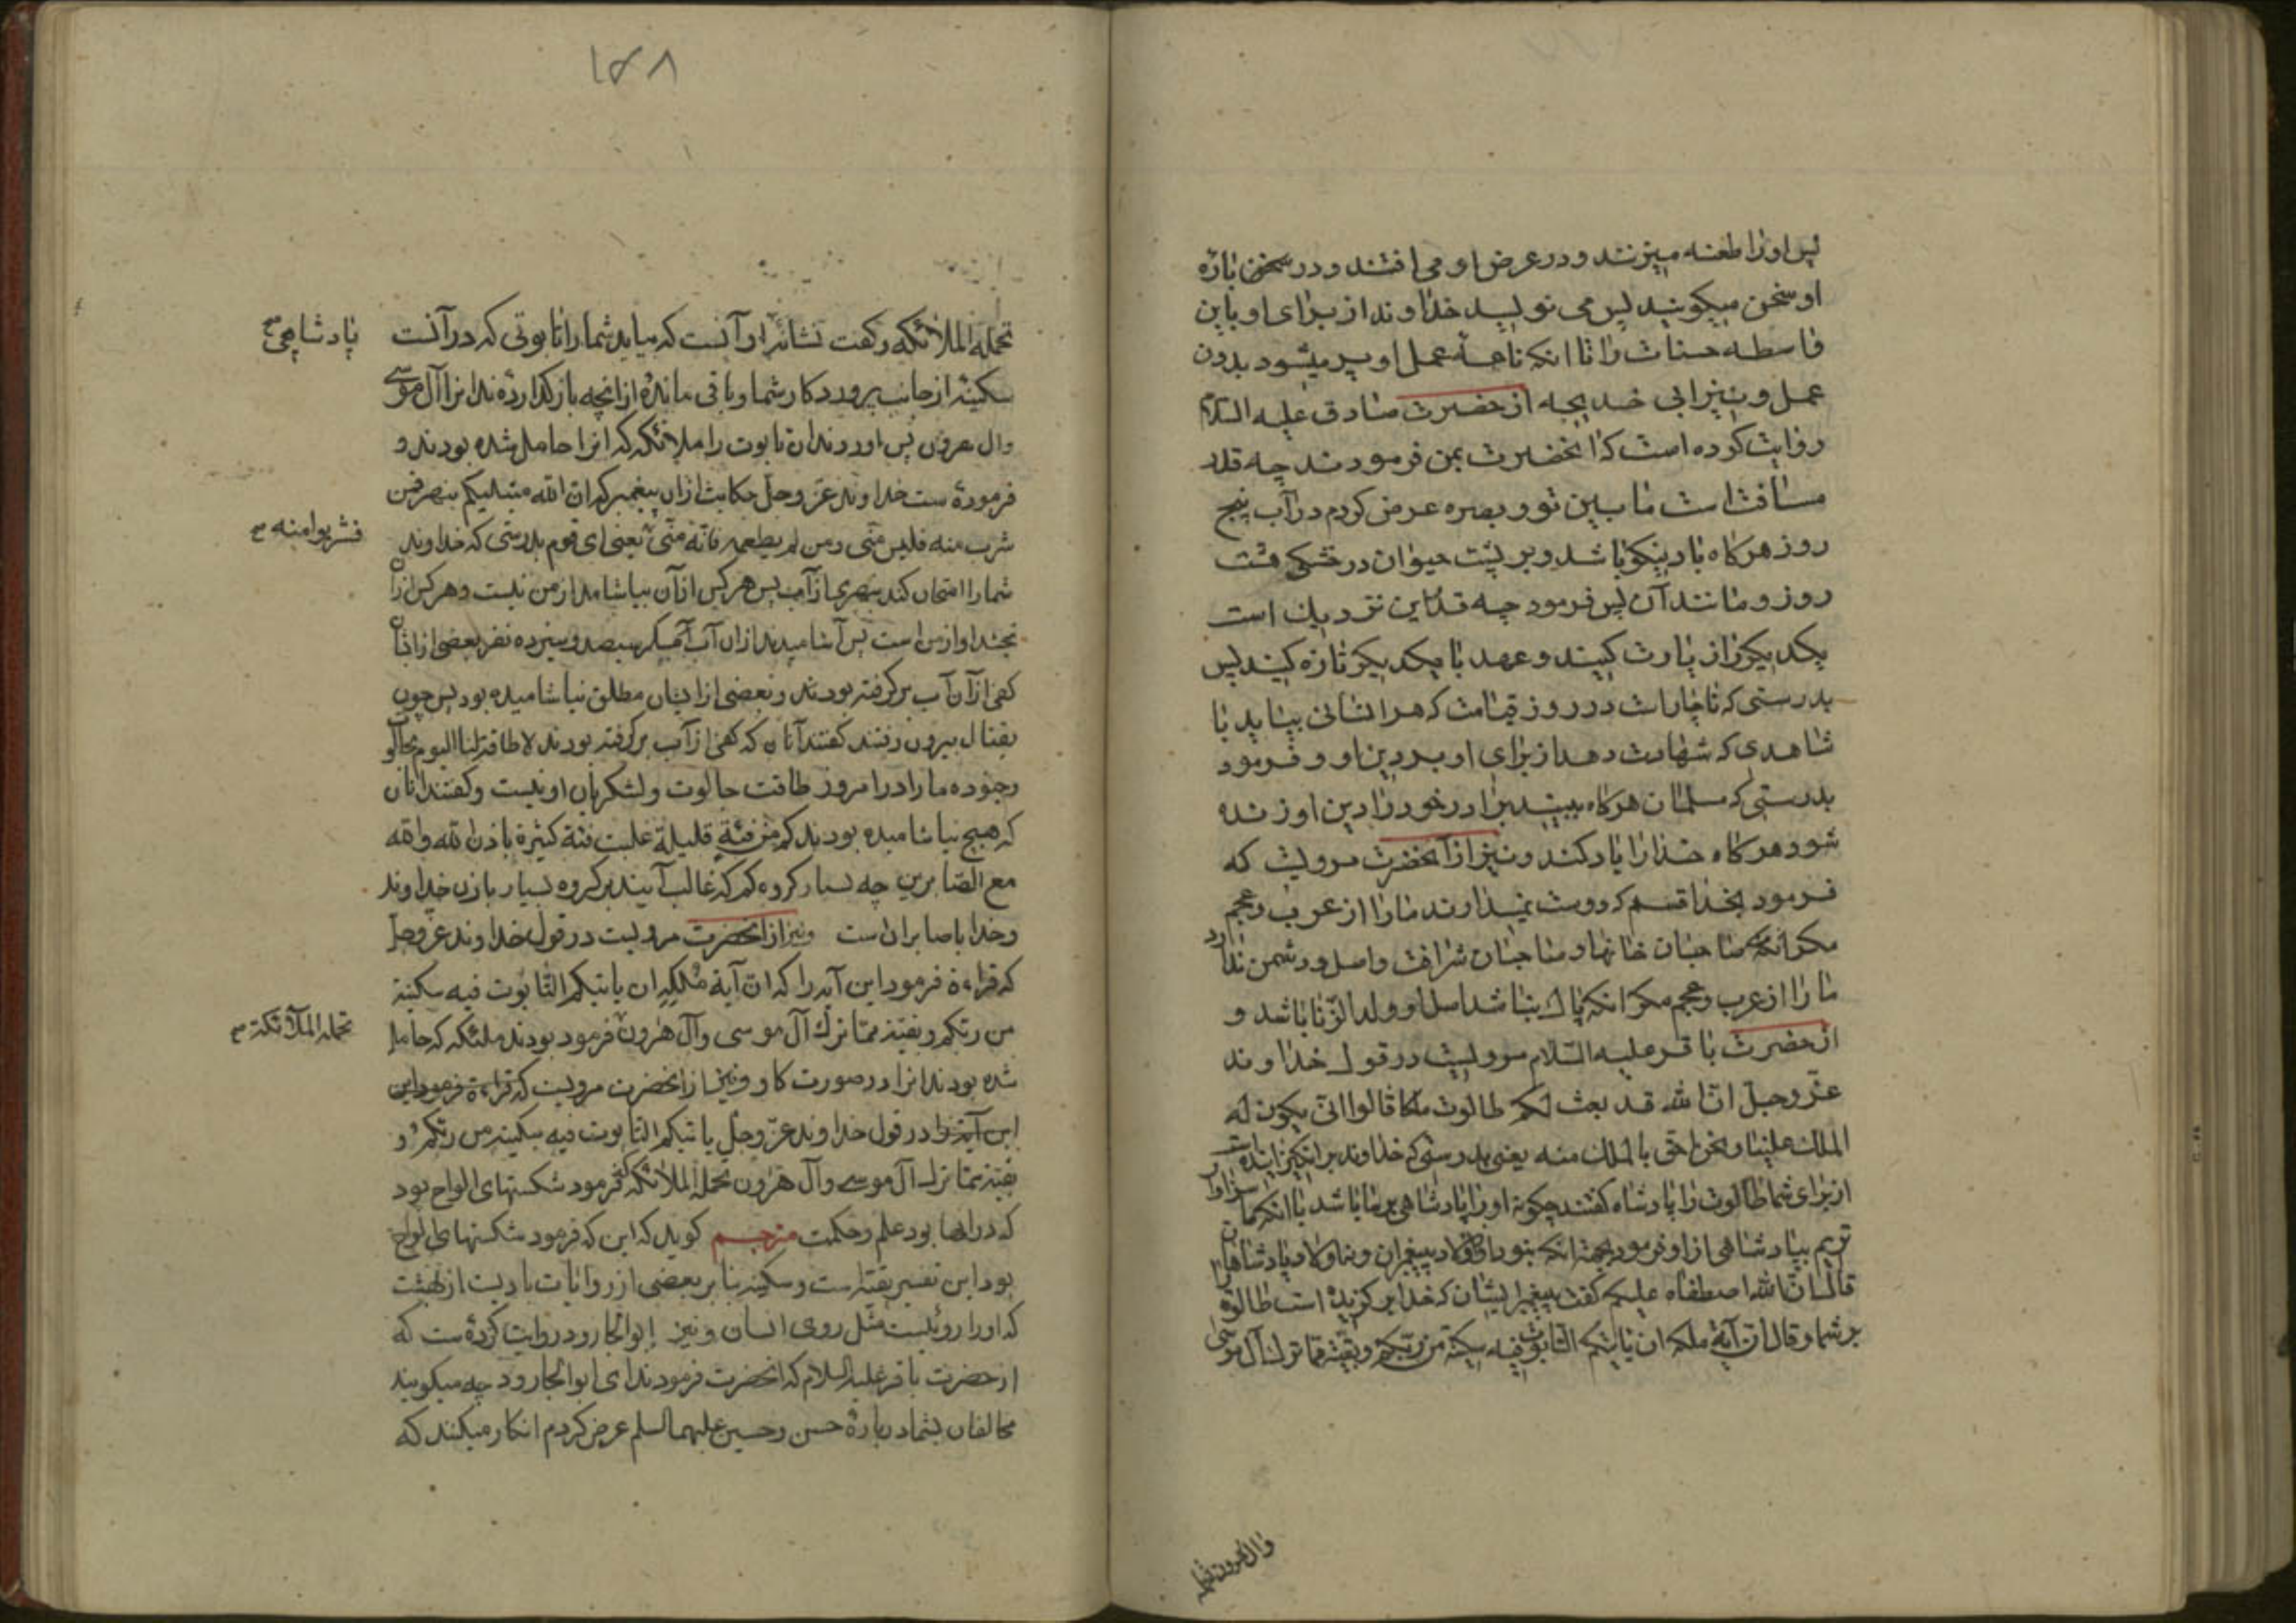 پس او را طعنه میزنند و در عرض او می افتند و در سخن باره
او سخن میکویند پس می نویسد خداوند از برای او باین
واسطه حسنات را تا انکه نامهٔ عمل او پر میشود بدون
عمل و نیز ابی خدیجه از حضرت صادق علیه السلام
روایت کرده است که انحضرت بمن فرمودند چه قدر
مسافت است ما بین تو و بصره عرض کردم در آب پنج
روز هرکاه باد نیکو باشد و بر پشت حیوان در خشکی هشت
روز و مانند آن پس فرمود چه قدر این نزدیک است
یکدیکر را زیارت کنید و عهد با یکدیکر تازه کنید پس
بدرستی که ناچار است در روز قیامت که هر انسانی بیاید با
شاهدی که شهادت دهد از برای او بر دین او و فرمود
بدرستی که مسلمان هرکاه ببیند برادر خود را دین او زنده
شود هرکاه خدا را یاد کند و نیز از آنحضرت مرویست که
فرمود بخدا قسم که دوست نمیدارند ما را از عرب و عجم
مکر انکه صاحبان خانها و صاحبان شرافت و اصل و دشمن ندارد
ما را از عرب و عجم مکر انکه پاک نباشد اصل او و ولد الزنا باشد و
از حضرت باقر علیه السلام مرویست در قول خداوند
عزّ وجلّ انّ الله قد بعث لکم طالوت ملکا قالوا انّی یکون له
الملک علینا و نحن احق بالملک منه یعنی بدرستی که خداوند برانکیزانیده است
از برای شما طالوت را پادشاه کفتند چکونه او را پادشاهی بر ما باشد با انکه ما سزاوار
تریم بپادشاهی از او فرمود بجهة انکه نبود از اولاد پیغمبران و نه اولاد پادشاهان
قال انّ الله اصطفاه علیکم کفت پیغمبر ایشان که خدا بر کزیده است طالوت
بر شما و قال انّ آیة ملکه ان یاتیکم التابوت فیه سکینة من ربّکم و بقیة ممّا ترک آل موسی
وال هرون تحمله
۱۵۸
تحمله الملائکه و کفت نشانهٔ او آنست که میاید شما را تابوتی که در آنست
پادشاهی صح
سکینه از جانب پروردکار شما و باقی ماندهٔ از انچه باز کذارده‌اند انرا آل موسی
وال هرون پس اوردند ان تابوت را ملائکه که انرا حامل شده بودند و
فرمودهٔ ست خداوند عزّ وجلّ حکایت از ان پیغمبر که ان الله مبتلیکم بنهر فمن
فشربوا منه صح
شرب منه فلیس منّی و من لم یطعمه فانّه منّی یعنی ای قوم بدرستی که خداوند
شما را امتحان کند بنهری از آب پس هر کس از آن بیاشامد از من نیست و هر کس از آن
نچشد او از من است پس آشامیدند از ان آب مکر سیصد و سیزده نفر بعضی از ایشان
کفی از آن آب بر کرفته بودند و بعضی از ایشان مطلق نیاشامیده بود پس چون
بقتال بیرون رفتند کفتند آنان که کفی از آب بر کرفته بودند لا طاقة لنا الیوم بجالوت
وجنوده ما را در امروز طاقت جالوت و لشکریان او نیست و کفتند انان
که هیچ نیاشامیده بودند کم من فئة قلیلة غلبت فئة کثیرة باذن الله والله
مع الصّابرین چه بسیار کروه کم که غالب آیند بر کروه بسیار باذن خداوند
وخدا با صابران است ونیز از انحضرت مرویست در قول خداوند عزّ وجلّ
که قراءة فرمود این آیه را که انّ آیة ملکه ان یاتیکم التّابوت فیه سکینة
من ربّکم و بقیة ممّا ترک آل موسی وآل هرون فرمود بودند ملئکه که حامل
تحمله الملآئکة صح
شده بودند انرا در صورت کاو ونیز از انحضرت مرویست که قراءة فرمود این
این آیه را در قول خداوند عزّ وجلّ یاتیکم التابوت فیه سکینة من ربّکم و
بقیة ممّا ترک آل موسی وآل هرون تحمله الملائکة که فرمود شکستهای الواح بود
که در انها بود علم و حکمت مترجم کوید که این که فرمود شکستهای الواح
بود این تفسیر بقیّه است و سکینه بنا بر بعضی از روایات بادیست از بهشت
که او را روئیست مثل روی انسان ونیز ابو الجارود روایت کردهٔ ست که
از حضرت باقر علیه السلام که انحضرت فرمودند ای ابو الجارود چه میکویند
مخالفان بشما در بارهٔ حسن وحسین علیهما السلم عرض کردم انکار میکنند که